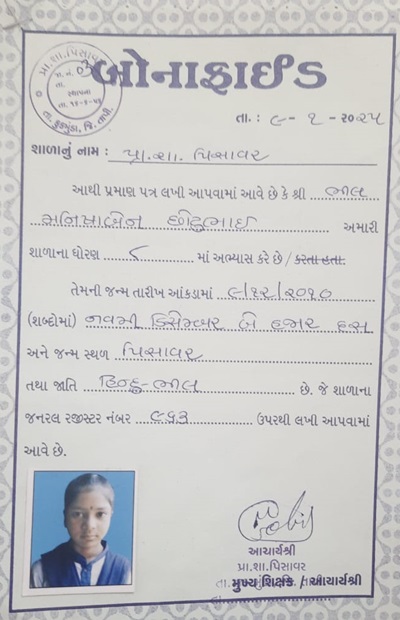 પ્રા.શા.પિસાવર
પ્રા. નં. 03
તા.
સ્થાપના
તા. કુકરમુંડા, જિ. તાપી.
બોનાફાઈડ
તા. : ૯-૧-૨૦૨૫
શાળાનું નામ : પ્રા.શા. પિસાવર
આથી પ્રમાણ પત્ર લખી આપવામાં આવે છે કે શ્રી ભીલ
મનિષાબેન છોટુભાઈ અમારી
શાળાના ધોરણ ૮ માં અભ્યાસ કરે છે / કરતા હતા.
તેમની જન્મ તારીખ આંકડામાં ૯/૧૨/૨૦૧૦
(શબ્દોમાં) નવમી ડિસેમ્બર બે હજાર દસ
અને જન્મ સ્થળ પિસાવર
તથા જાતિ હિન્દુ-ભીલ છે. જે શાળાના
જનરલ રજીસ્ટર નંબર ૯૬૩ ઉપરથી લખી આપવામાં
આવે છે.
આચાર્યશ્રી
પ્રા.શા.પિસાવર
મુખ્ય શિક્ષક / આચાર્યશ્રી